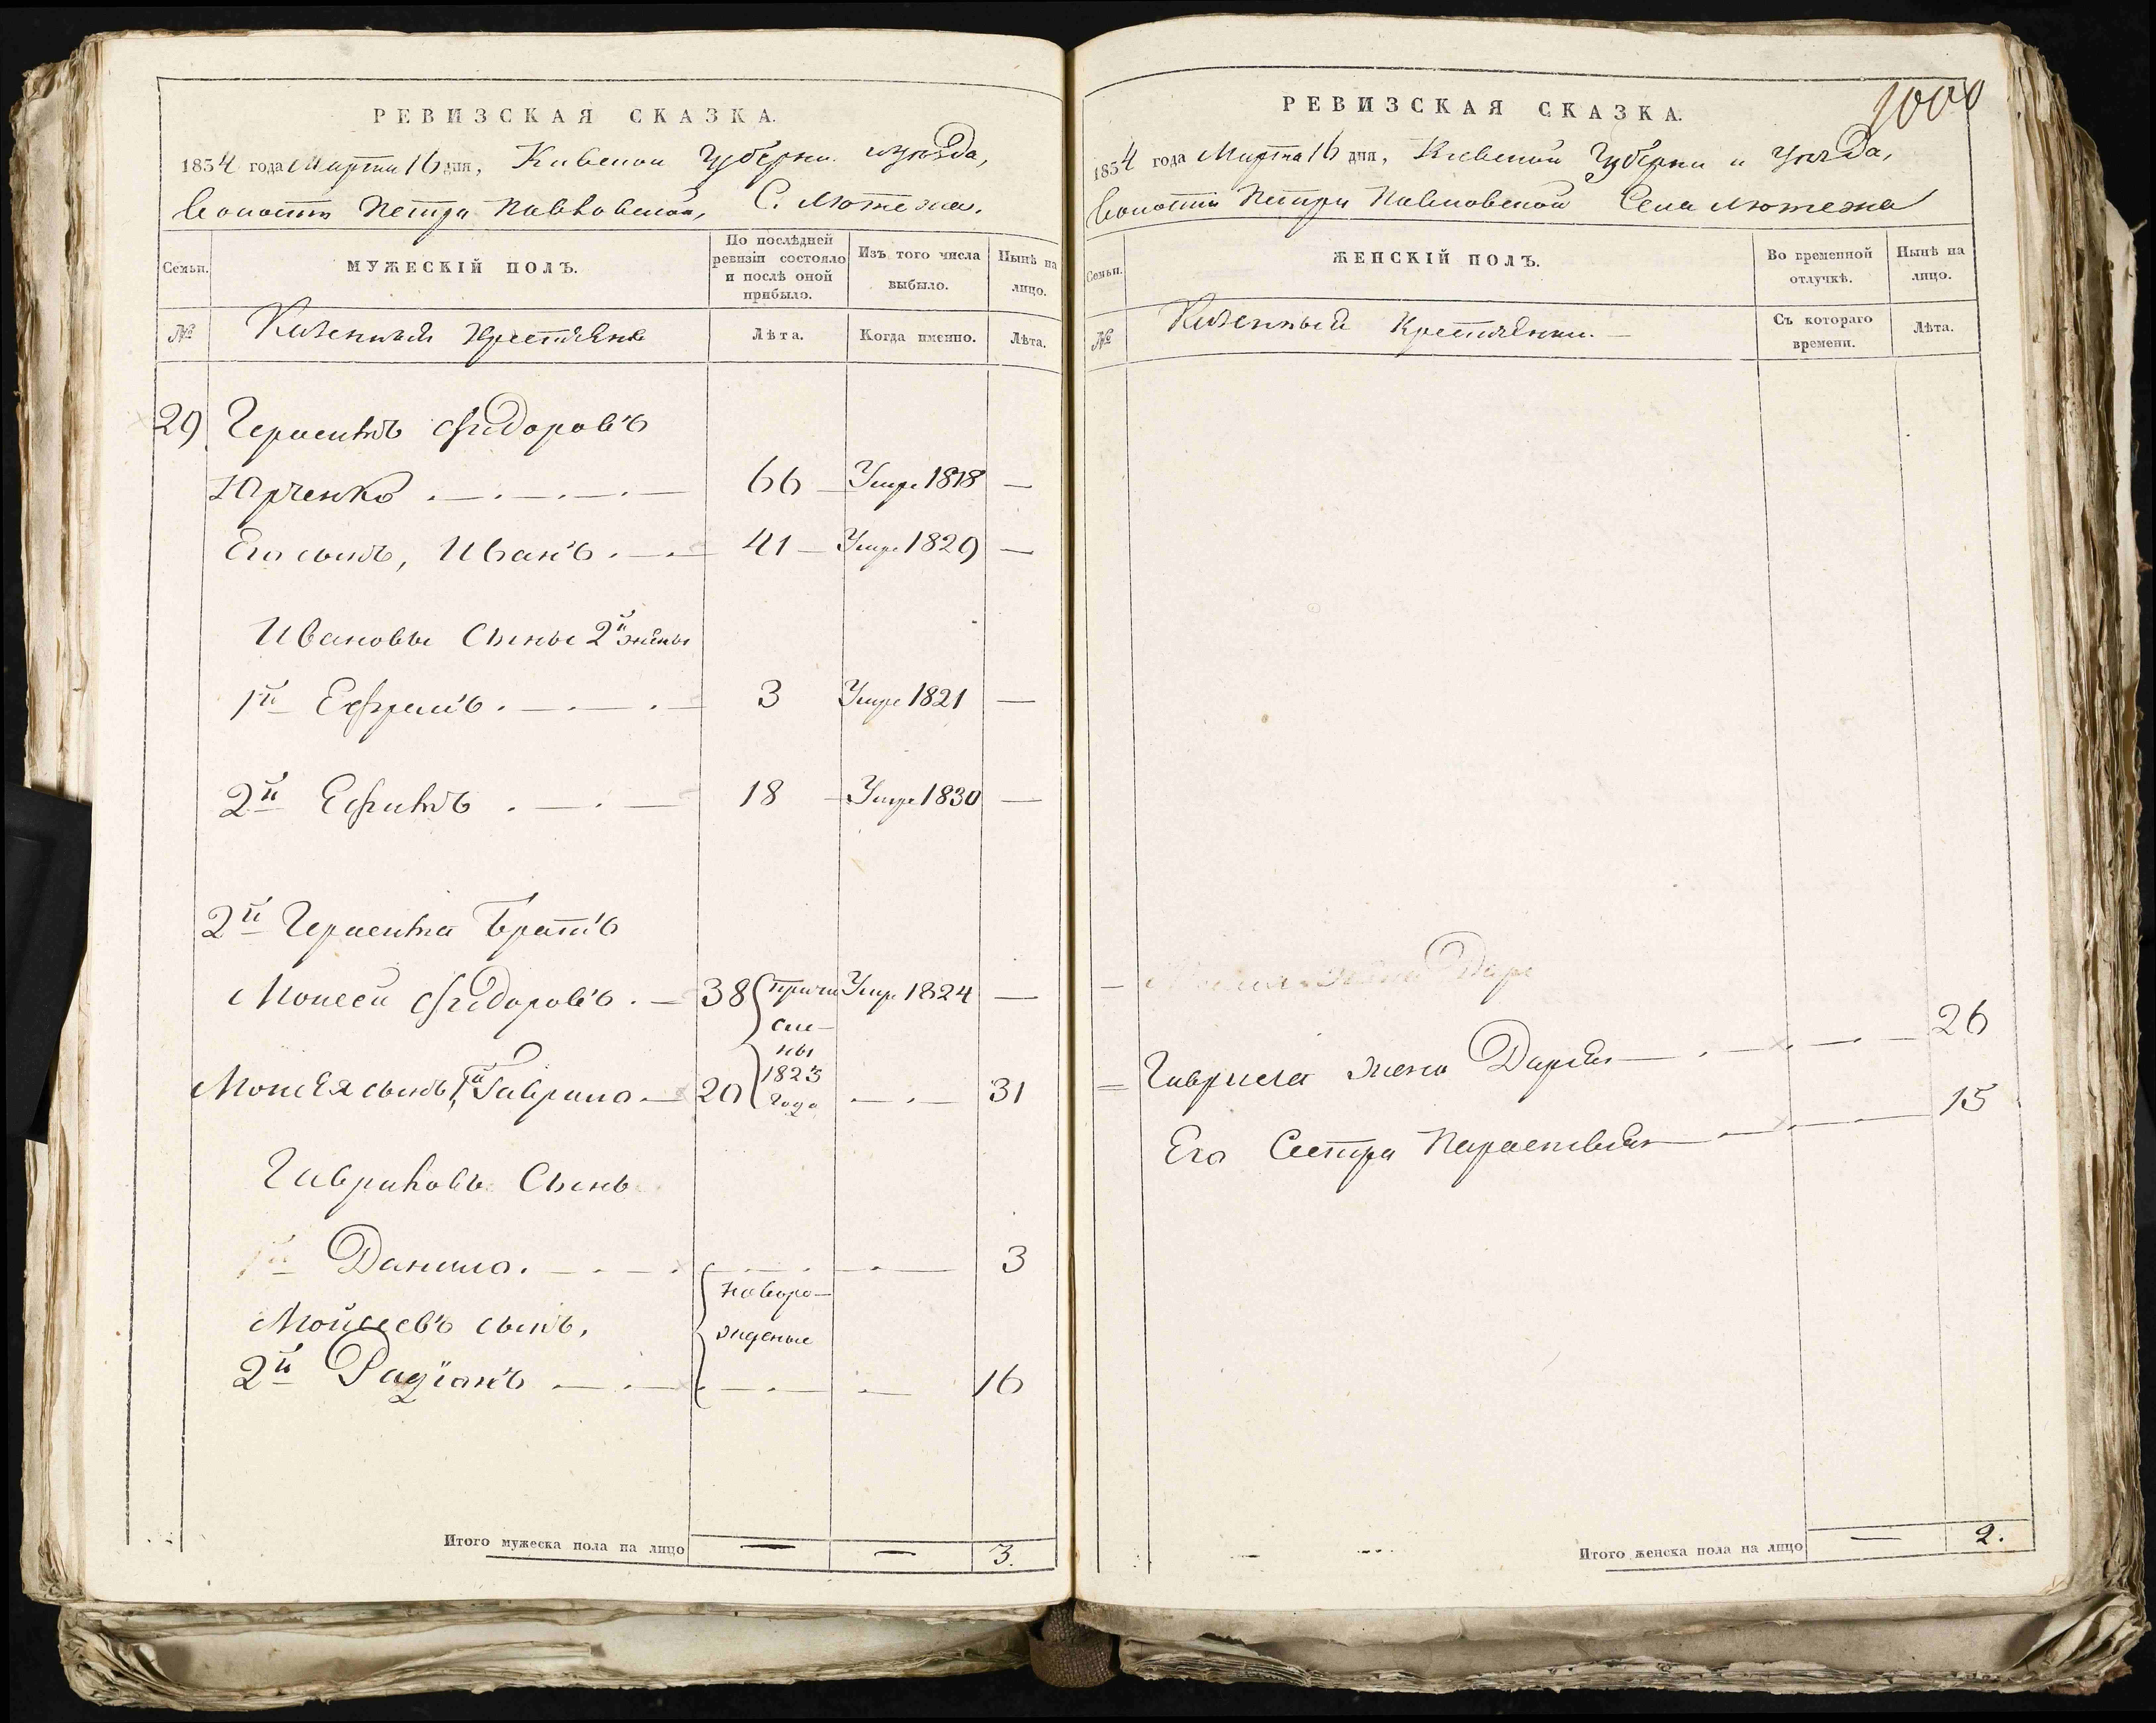 РЕВИЗСКАЯ СКАЗКА.
1834 года Марта 16 дня, Кіевской Губерніи и уѣзда,
Волости Петро Павловской, С. Лютежа.
Семьи.
МУЖЕСКІЙ ПОЛЪ.
По послѣдней ревизіи состояло и послѣ оной прибыло.
Изъ того числа выбыло.
Нынѣ на лицо.
№
Казенныи Крестьяне
Лѣта.
Когда именно.
Лѣта.
29
Герасимъ Фидоровъ
Юрченко 66 Умре 1818
Его сынъ, Иванъ 41 Умре 1829
Ивановы Сыны 2й жены
1й Ефремъ 3 Умре 1821
2й Ефимъ 18 Умре 1830
2й Герасима Братъ
Моисей Фидоровъ 38 Умре 1824
Моисея сынъ 1й Гаврило 20 31
1823
года
Гавриловъ Сынъ
1й Данило. 3
новоро-
жденые
Мойсеевъ сынъ,
2й Радіонъ 16
Итого мужеска пола на лицо 3.
1000
РЕВИЗСКАЯ СКАЗКА.
1834 года Марта 16 дня, Кіевской Губерніи и уѣзда,
Волости Петро Павловской Села Лютежа
Семьи.
ЖЕНСКІЙ ПОЛЪ.
Во временной отлучкѣ.
Нынѣ на лицо.
№
Казенныи Крестьянки.
Съ котораго времени.
Лѣта.
Гаврила жена Дарья 26
Его Сестра Параскевья 15
Итого женска пола на лицо 2.